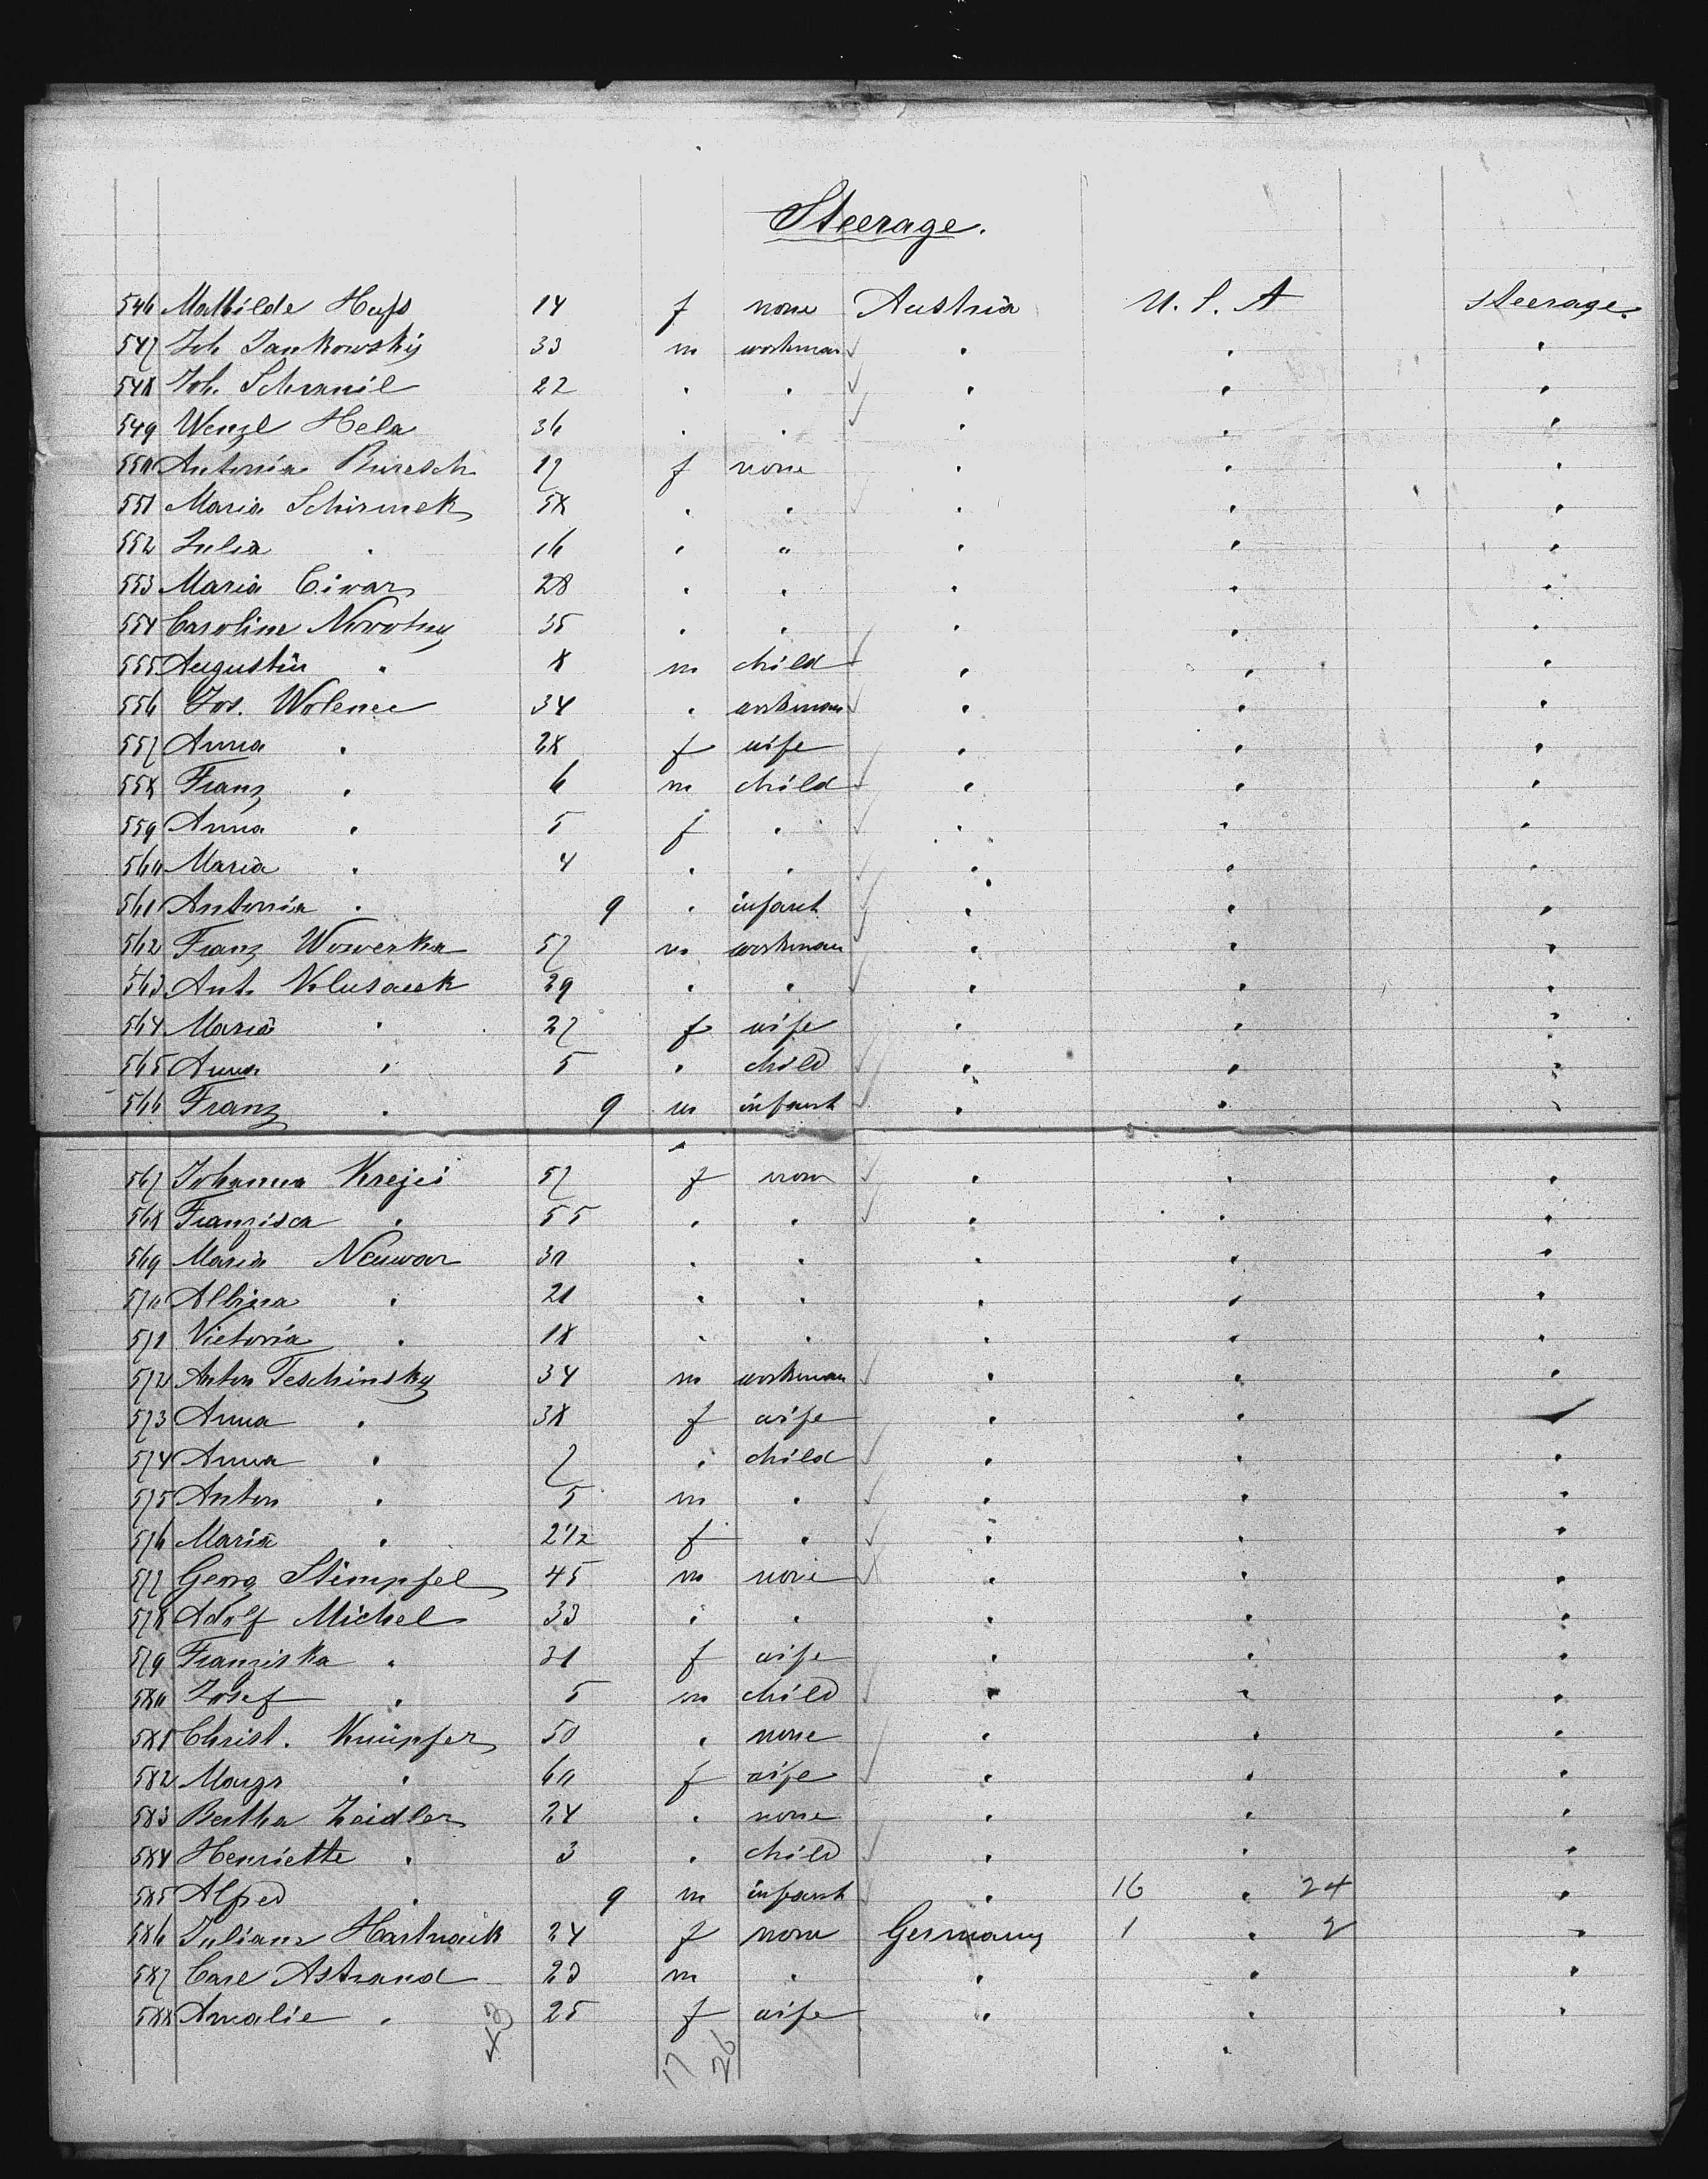 Steerage.
546 Mathilde Hufs 14 f none Austria U. S. A steerage.
547 Joh Jankowsky 33 m workman " " "
548 Joh. Schramil 22 " " " " "
549 Wenzl Hela 36 " " " " "
550 Antonia Buresch 17 f none " " "
551 Maria Schirmek 58 " " " " "
552 Julia " 16 " " " " "
553 Maria Ciwar 28 " " " " "
554 Caroline Novotny 35 " " " " "
555 Augustin " 8 m child " " "
556 Jos. Wolenec 34 " workman " " "
557 Anna " 28 f wife " " "
558 Franz " 6 m child " " "
559 Anna " 5 f " " " "
560 Maria " 4 " " " " "
561 Antonia " 9 " infant " " "
562 Franz Wowerka 57 m workman " " "
563 Ant. Klusacek 29 " " " " "
564 Maria " 27 f wife " " "
565 Anna " 5 " child " " "
566 Franz " 9 m infant " " "
567 Johanna Krejci 57 f none " " "
568 Franzisca " 55 " " " " "
569 Maria Neuwar 30 " " " " "
570 Albina " 21 " " " " "
571 Victoria " 18 " " " " "
572 Anton Teschinsky 34 m workman " " "
573 Anna " 38 f wife " "
574 Anna " 7 " child " " "
575 Anton " 5 m " " " "
576 Maria " 2 1/2 f " " " "
577 Georg Stimpfel 45 m none " " "
578 Adolf Michel 33 " " " " "
579 Franziska " 31 f wife " " "
580 Josef " 5 m child " " "
581 Christ. Knüpfer 50 " none " " "
582 Margr " 60 f wife " " "
583 Bertha Zeidler 24 " none " " "
584 Henriette " 3 " child " " "
585 Alfred " 9 m infant " 16 " 24 "
586 Juliane Hartnack 24 f none Germany 1 " 2 "
587 Carl Astrand 23 m " " " "
588 Amalie " 25 f wife " " "
43 17 26